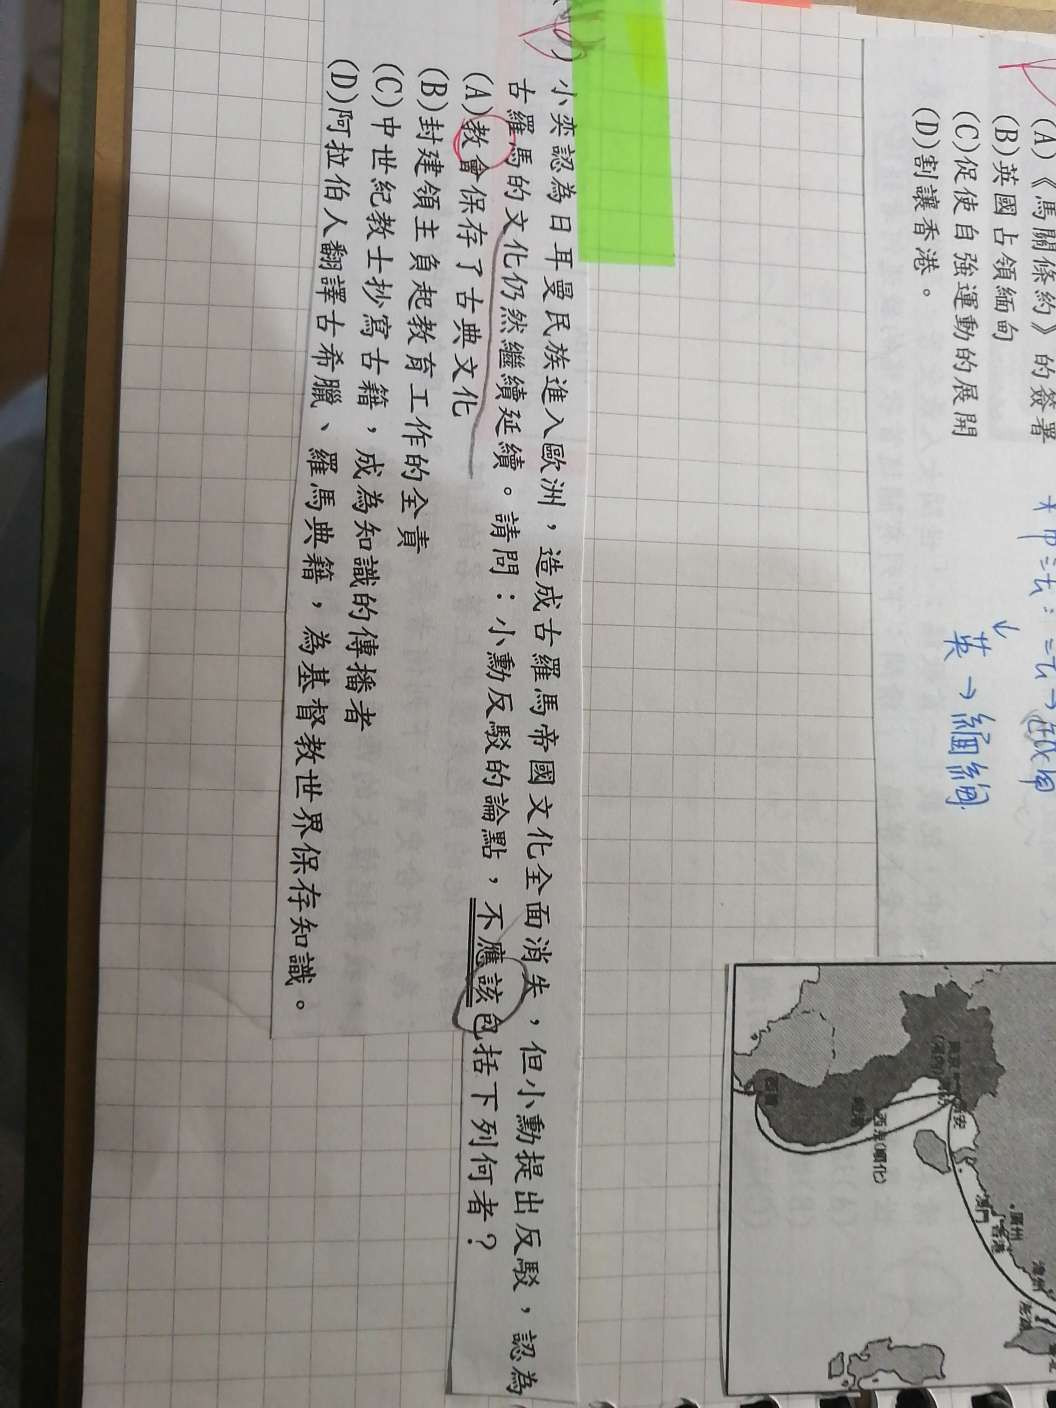 (A)《馬關條約》的簽署
(B)英國占領緬甸
(C)促使自強運動的展開
(D)割讓香港。
英→緬緬
廣州
香港
澳門
西貢
小奕認為日耳曼民族進入歐洲，造成古羅馬帝國文化全面消失，但小勳提出反駁，認為
古羅馬的文化仍然繼續延續。請問：小勳反駁的論點，不應該包括下列何者？
(A)教會保存了古典文化
(B)封建領主負起教育工作的全責
(C)中世紀教士抄寫古籍，成為知識的傳播者
(D)阿拉伯人翻譯古希臘、羅馬典籍，為基督教世界保存知識。